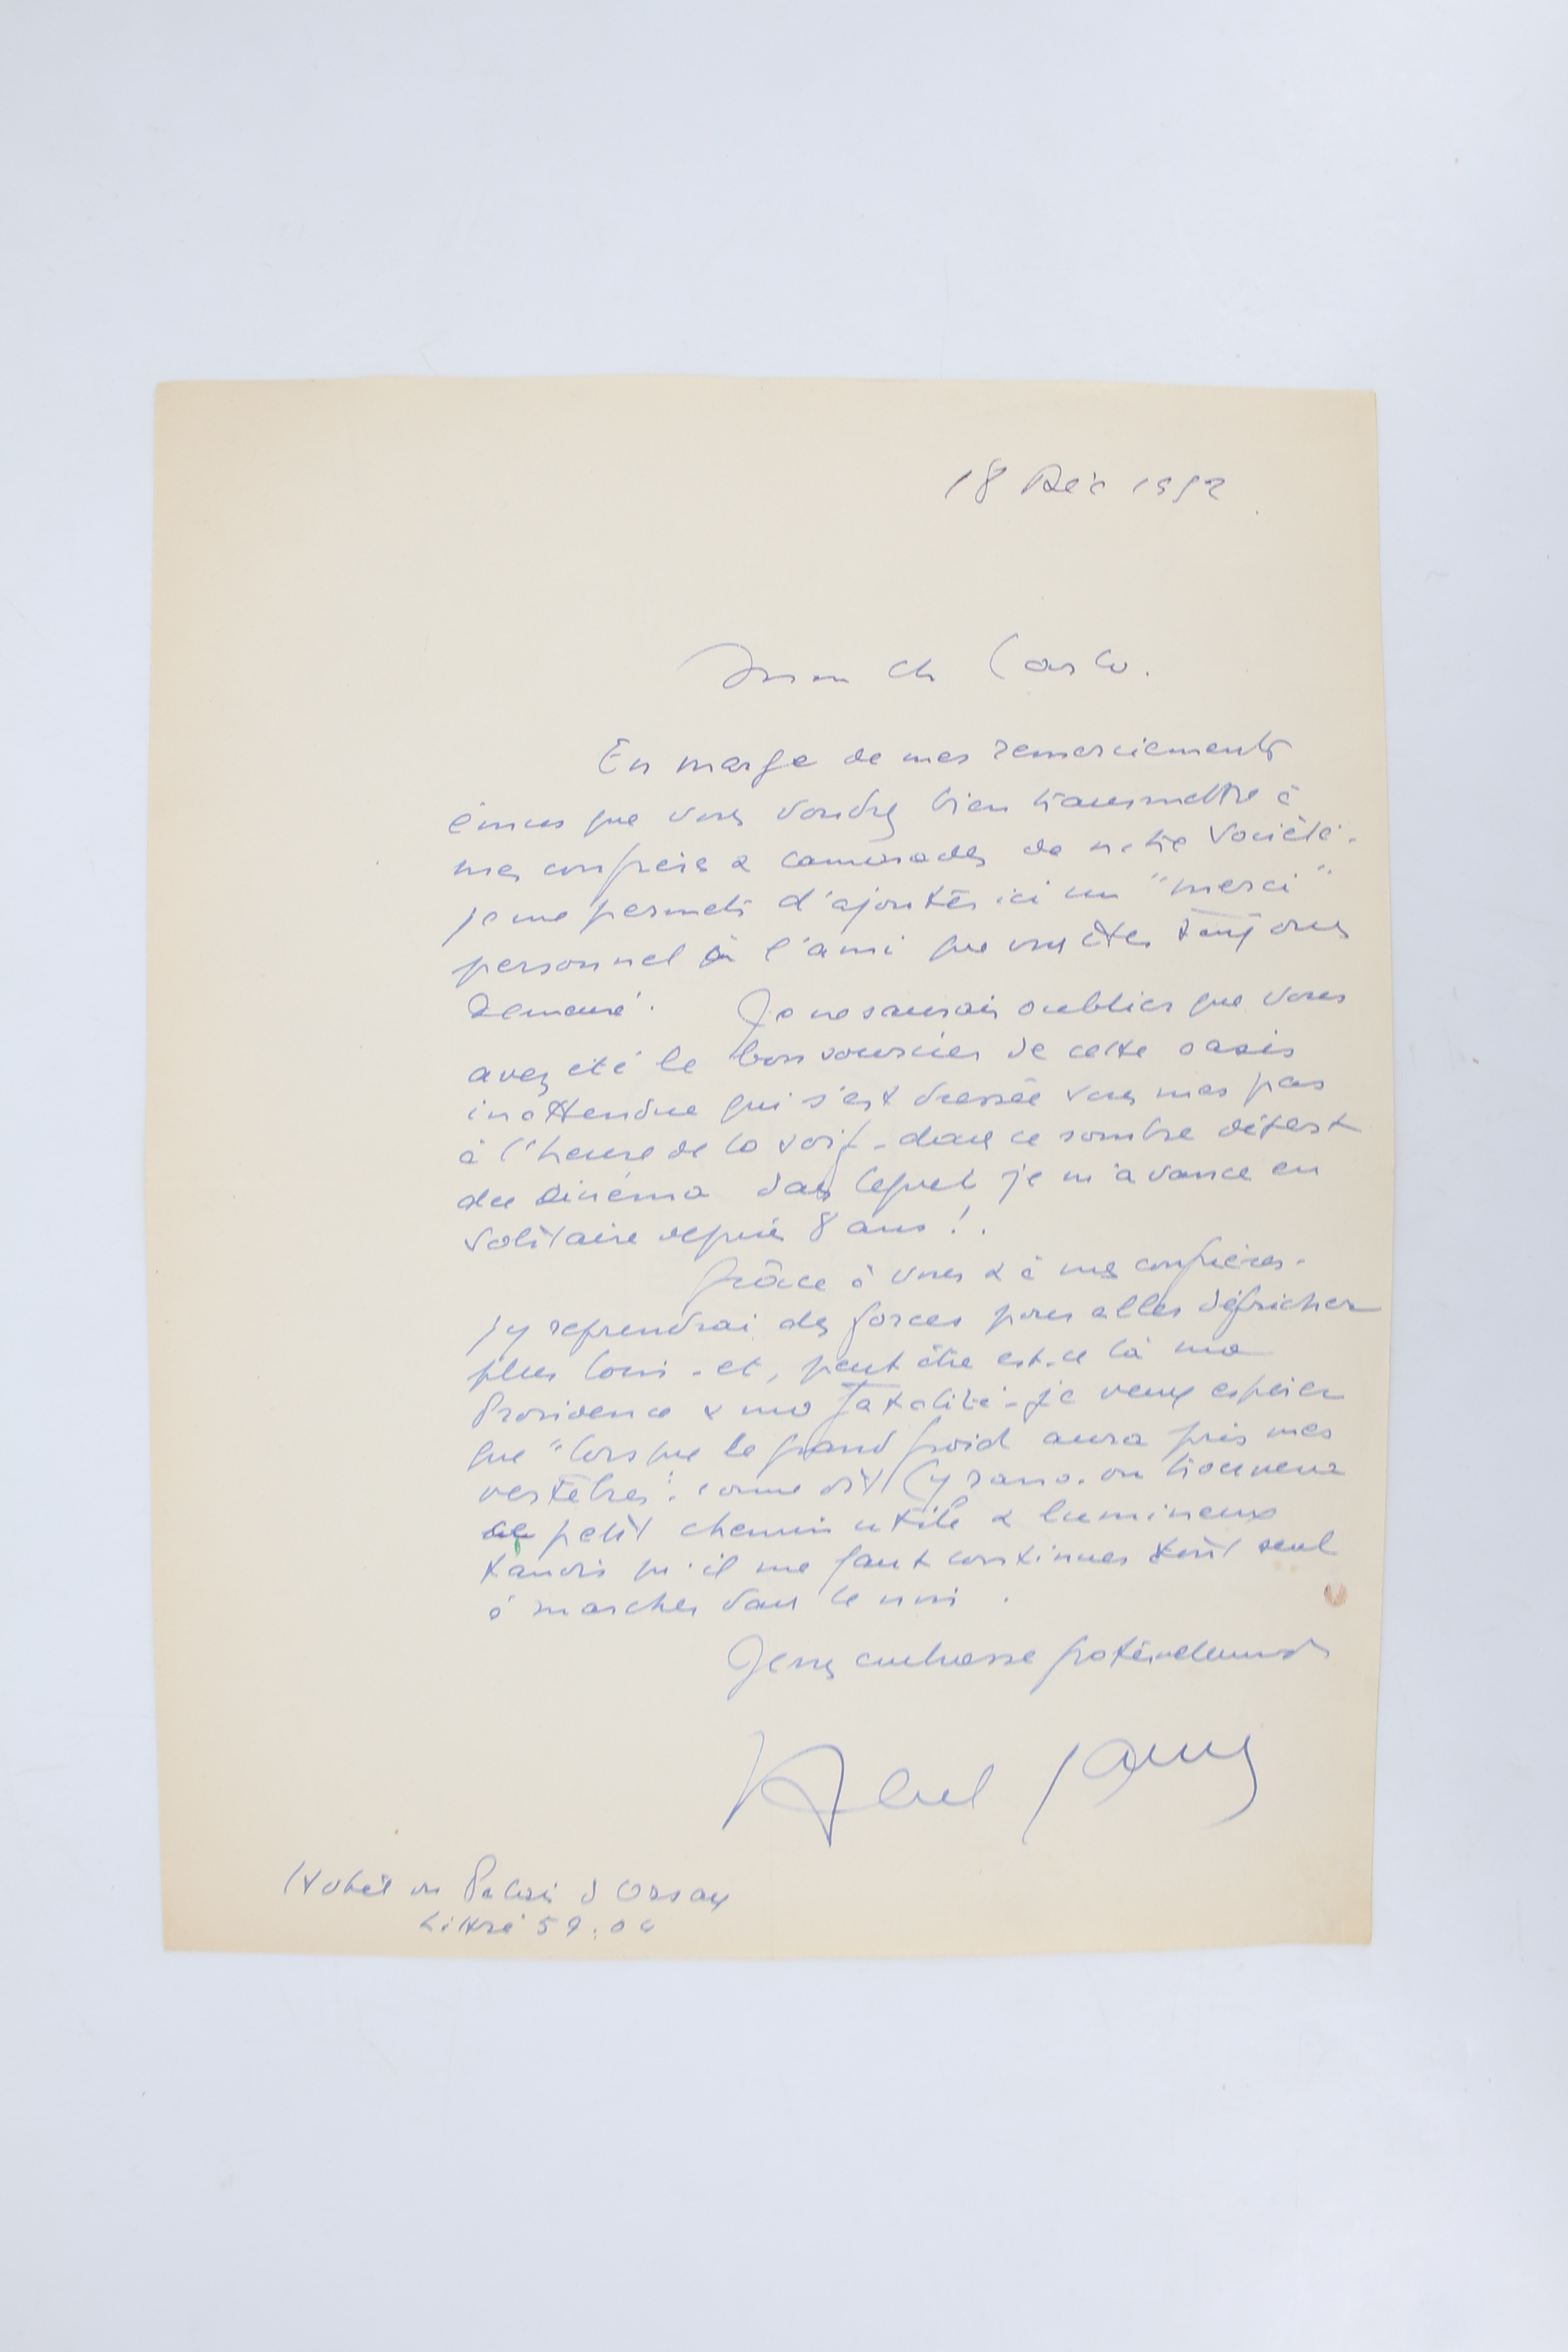 18 Déc 1952
Mon Ch Carlo.
En marge de mes remerciements
émus que vous voudrez bien transmettre à
mes confrères & camarades de notre Société -
je me permets d'ajouter ici un "merci"
personnel à l'ami que vous êtes toujours
demeuré. Je ne saurais oublier que vous
avez été le bon sourcier de cette oasis
inattendue qui s'est dressée sous mes pas
à l'heure de la soif - dans ce sombre désert
du Cinéma dans lequel je m'avance en
solitaire depuis 8 ans !.
Grâce à vous & à mes confrères -
j'y reprendrai des forces pour aller défricher
plus loin - et, peut être est-ce là ma
Providence & ma Fatalité - je veux espérer
que "lorsque le grand froid aura pris mes
vertèbres" comme dit Cyrano. on trouvera
ce petit chemin utile & lumineux
tandis qu'il me faut continuer tout seul
à marcher dans le noir .
Je vous embrasse fraternellement
Abel Gance
Hotel du Palais d'Orsay
Littré 59.